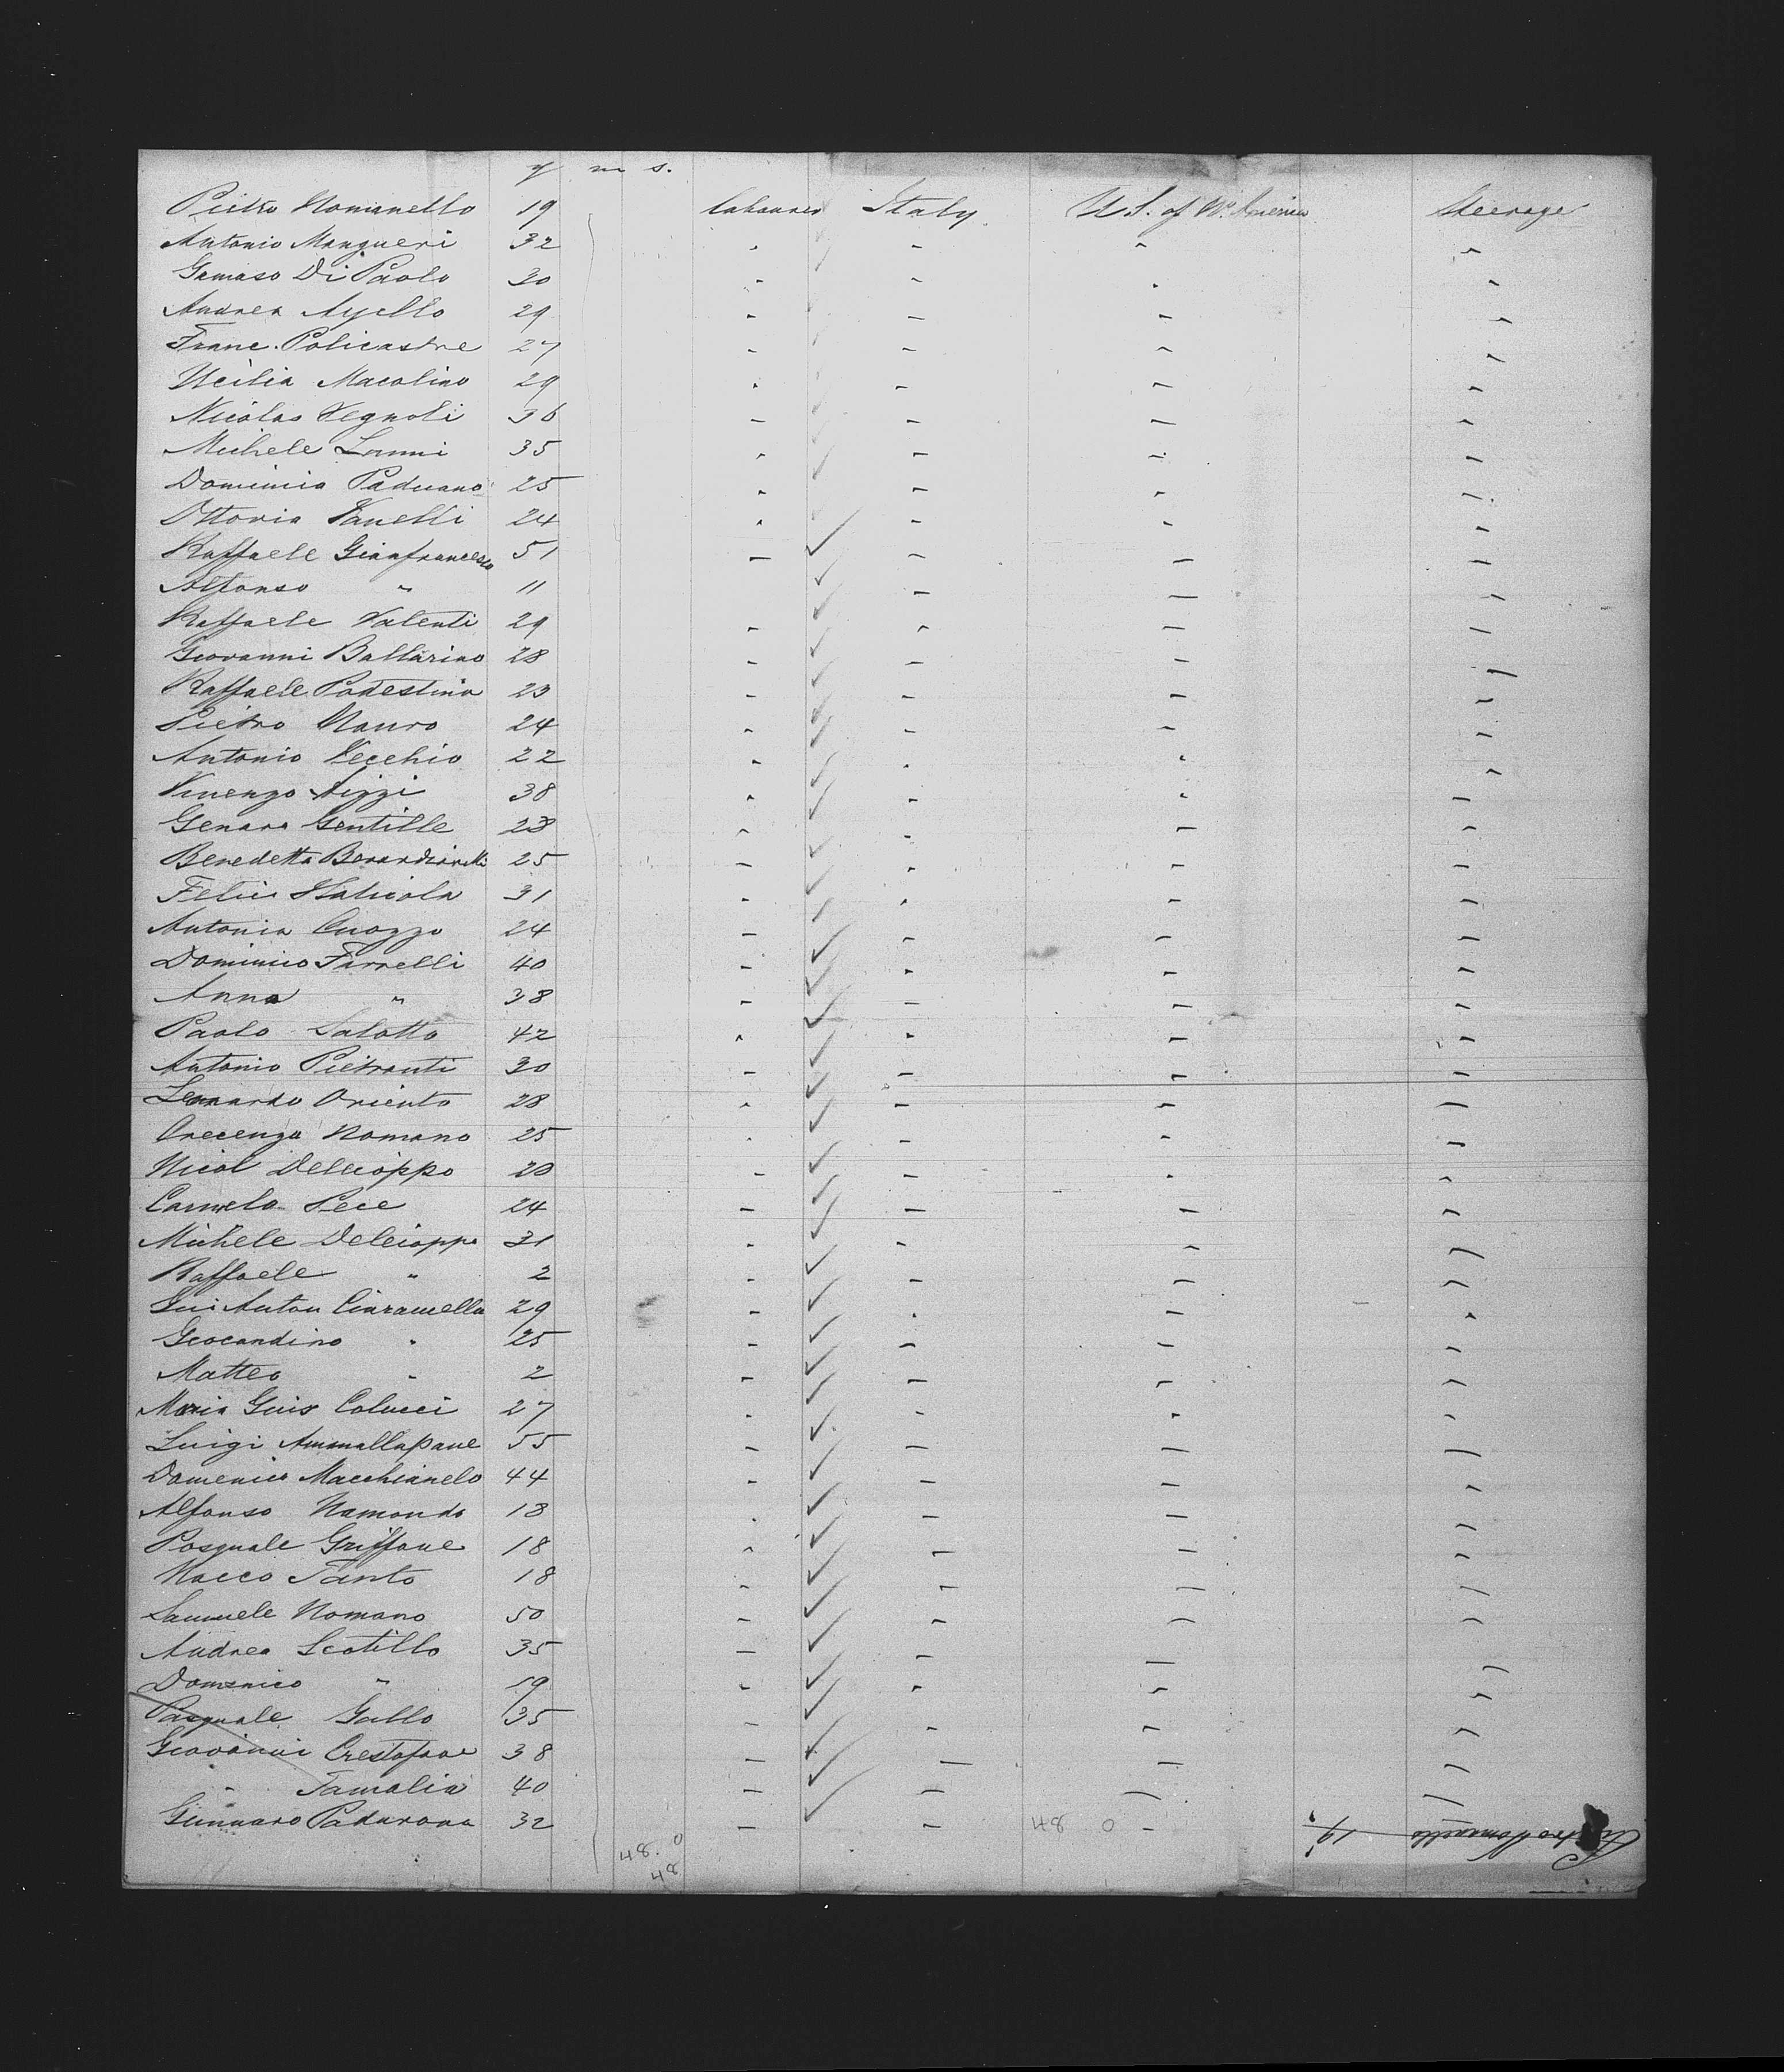 y m s.
Pietro Romanello 19 labourer Italy U S. of N. America Steerage
Antonio Mangueri 32 " " " "
Gamaso Di Paolo 30 " " " "
Andrea Ayello 29 " " " "
Franc. Policastre 27 " " " "
Ucilia Macolino 29 " " " "
Nicolas Vegnoli 36 " " " "
Michele Lanni 35 " " " "
Dominica Paduano 25 " " " "
Ottovia Vanelli 24 " " " "
Raffaele Gianfrancesco 51 " " " "
Alfonso " 11 " " "
Raffaele Valenti 29 " " " "
Giovanni Ballarino 28 " " " "
Raffaele Podestina 23 " " " "
Pietro Mauro 24 " " " "
Antonio Vecchio 22 " " " "
Vinenzo Aizzi 38 " " " "
Genara Gentille 28 " " " "
Benedetta Berardinelli 25 " " " "
Felici 31 " " " "
Antonia Cuozzo 24 " " " "
Dominico Farrelli 40 " " " "
Anna " 38 " " " "
Paolo Salotto 42 " " " "
Antonio Pietranti 30 " " " "
Leonardo Oriento 28 " " " "
Crecenza Romano 25 " " " "
Nicol Delcioppo 20 " " " "
Carmelo Pece 24 " " " "
Michele Delcioppo 31 " " " "
Raffaele " 2 " " " "
Gui Anton Ciaramella 29 " " " "
Geocondino " 25 " " " "
Matteo " 2 " " " "
Maria Guis Colucci 27 " " " "
Luigi Ammallapane 55 " " " "
Domenico Macchianelo 44 " " " "
Alfonso Ramondo 18 " " " "
Pasquale Griffone 18 " " " "
Rocco Santo 18 " " " "
Samuele Romano 50 " " " "
Andrea Scotillo 35 " " " "
Domenico " 19 " " " "
Pasquale Gallo 35 " " " "
Giovanni Crestofane 38 " " " "
" Tamalia 40 " " " "
Gennaro Padurona 32 " " 48 0 "
Pietro Romanello 19
48. 0
48